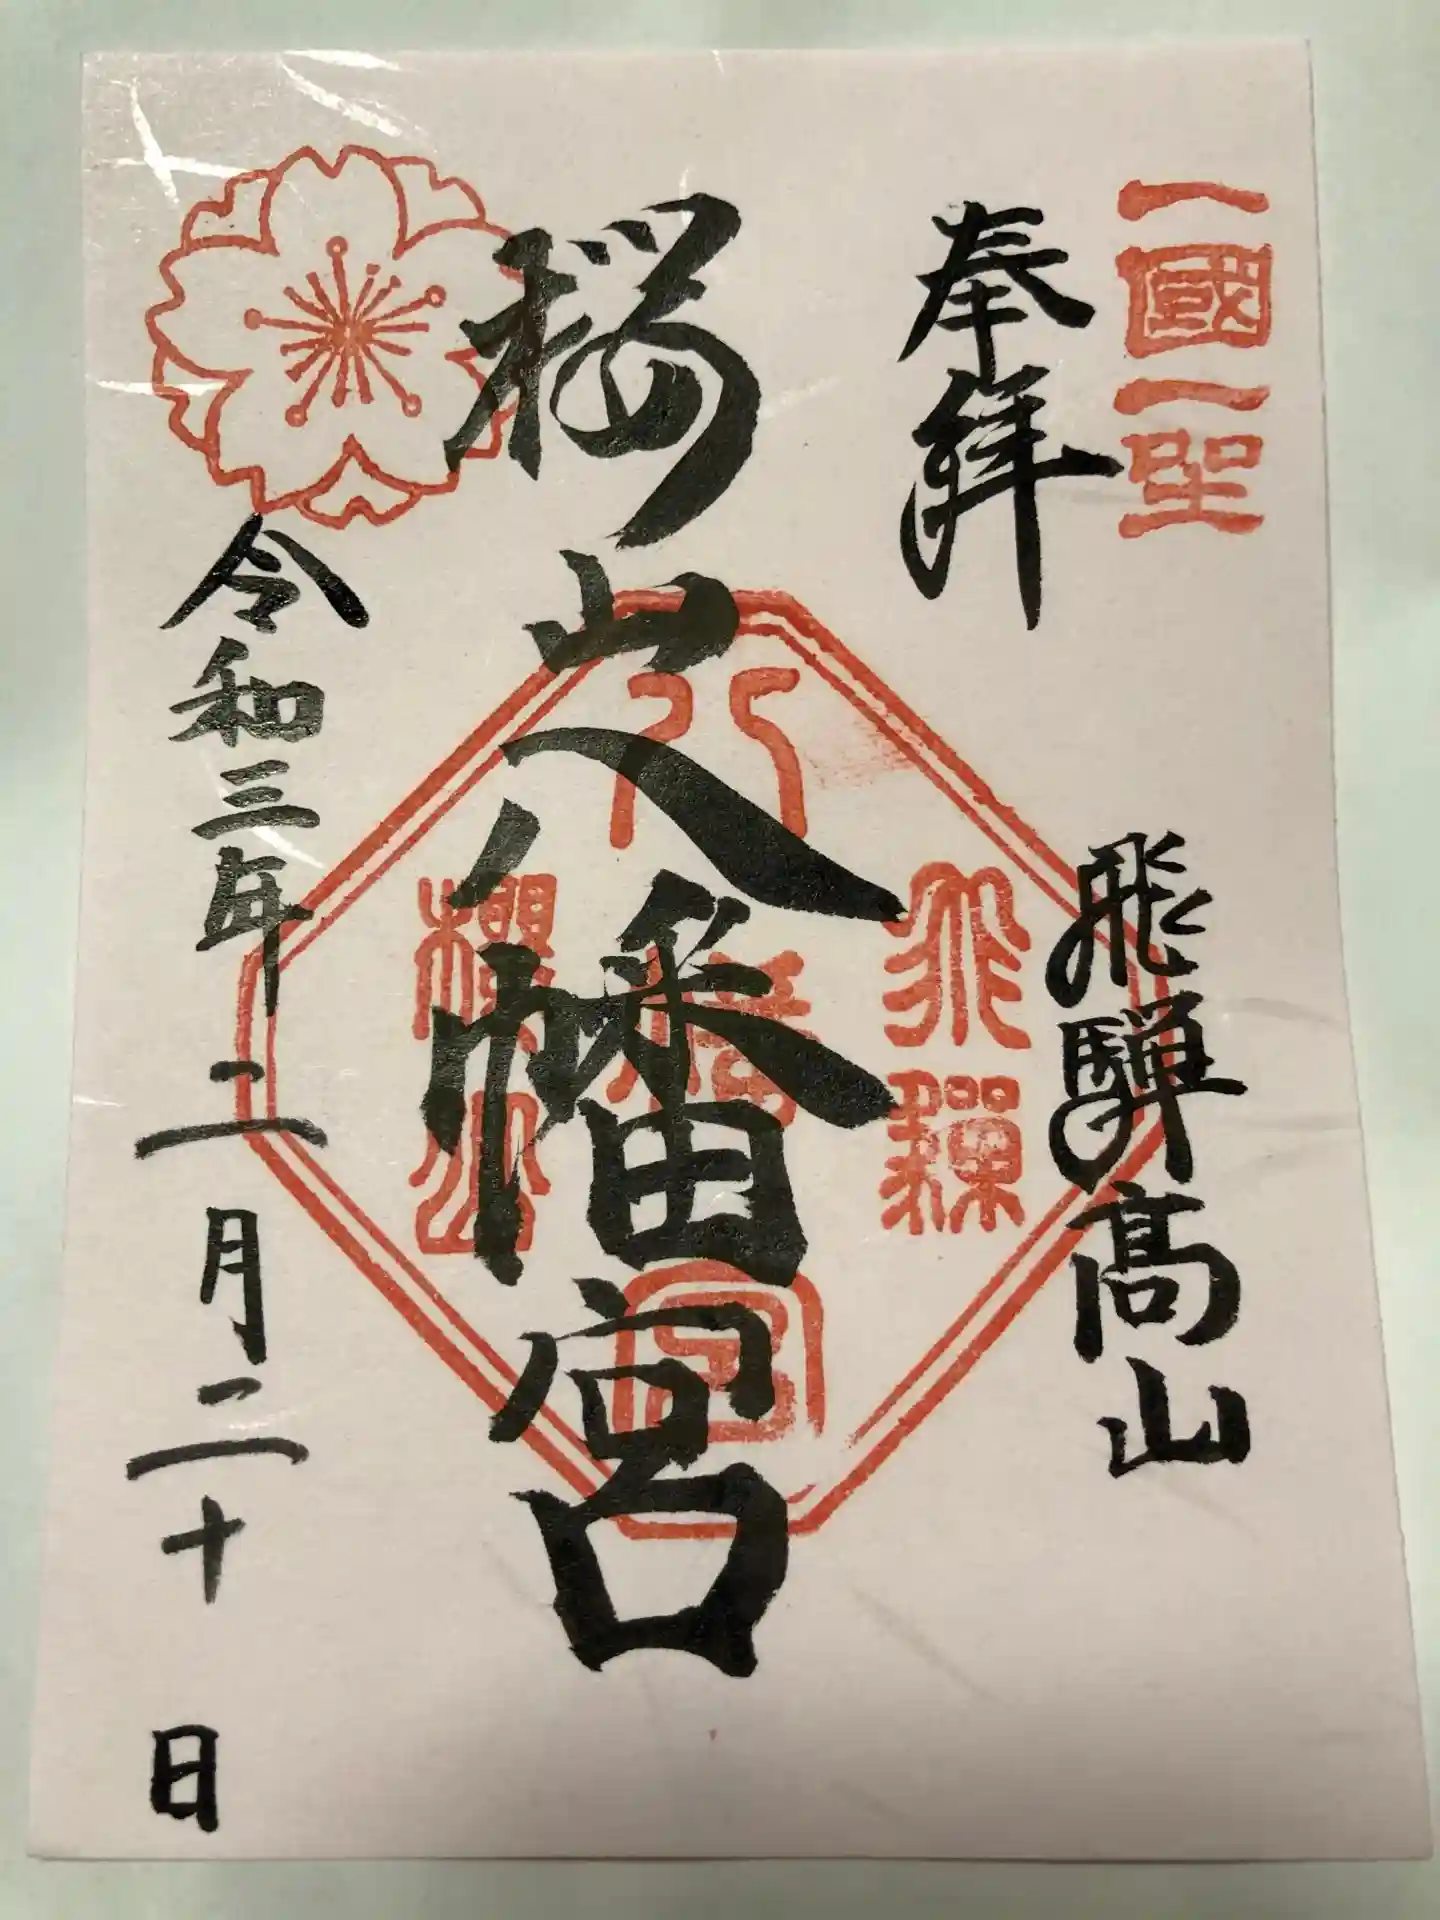 一國一聖
奉拜
飛騨髙山
桜山八幡宮
飛騨
八幡宮
櫻山
令和三年二月二十日